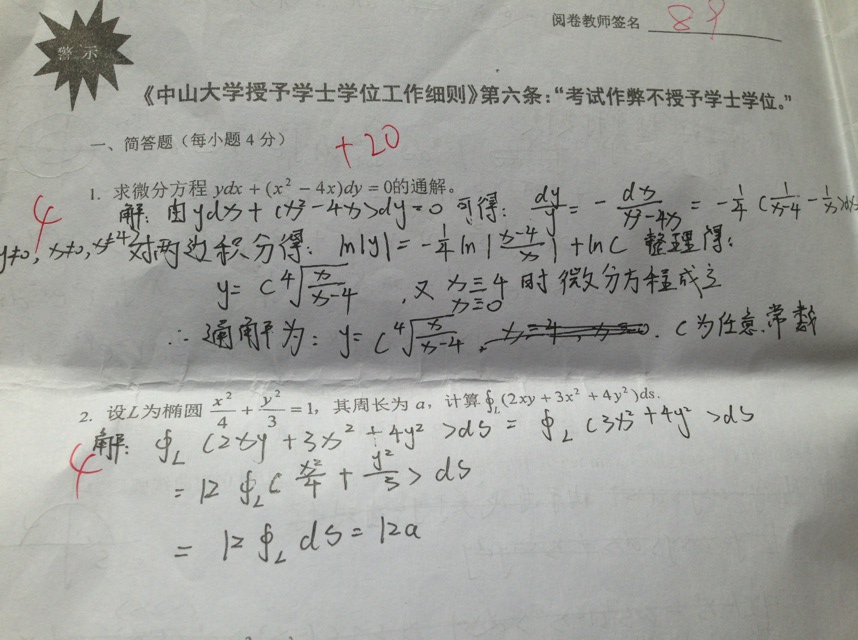 阅卷教师签名 89
警示
《中山大学授予学士学位工作细则》第六条：“考试作弊不授予学士学位。”
一、简答题（每小题 4 分） +20
1. 求微分方程 ydx + (x² − 4x)dy = 0的通解。
4 解：由ydx + (x² - 4x)dy = 0 可得： dy/y = - dx/(x²-4x) = -1/4 (1/(x-4) - 1/x)dx
y≠0, x≠0, x≠4 对两边积分得： ln|y| = -1/4 ln |(x-4)/x| + ln C 整理得：
y = C ⁴√(x/(x-4)) ，又 x=4 x=0 时微分方程成立
∴ 通解为： y = C ⁴√(x/(x-4)) . C为任意常数
2. 设L为椭圆 x²/4 + y²/3 = 1，其周长为 a，计算∮L(2xy + 3x² + 4y²)ds.
4 解： ∮L (2xy + 3x² + 4y²)ds = ∮L (3x² + 4y²)ds
= 12 ∮L (x²/4 + y²/3) ds
= 12 ∮L ds = 12a